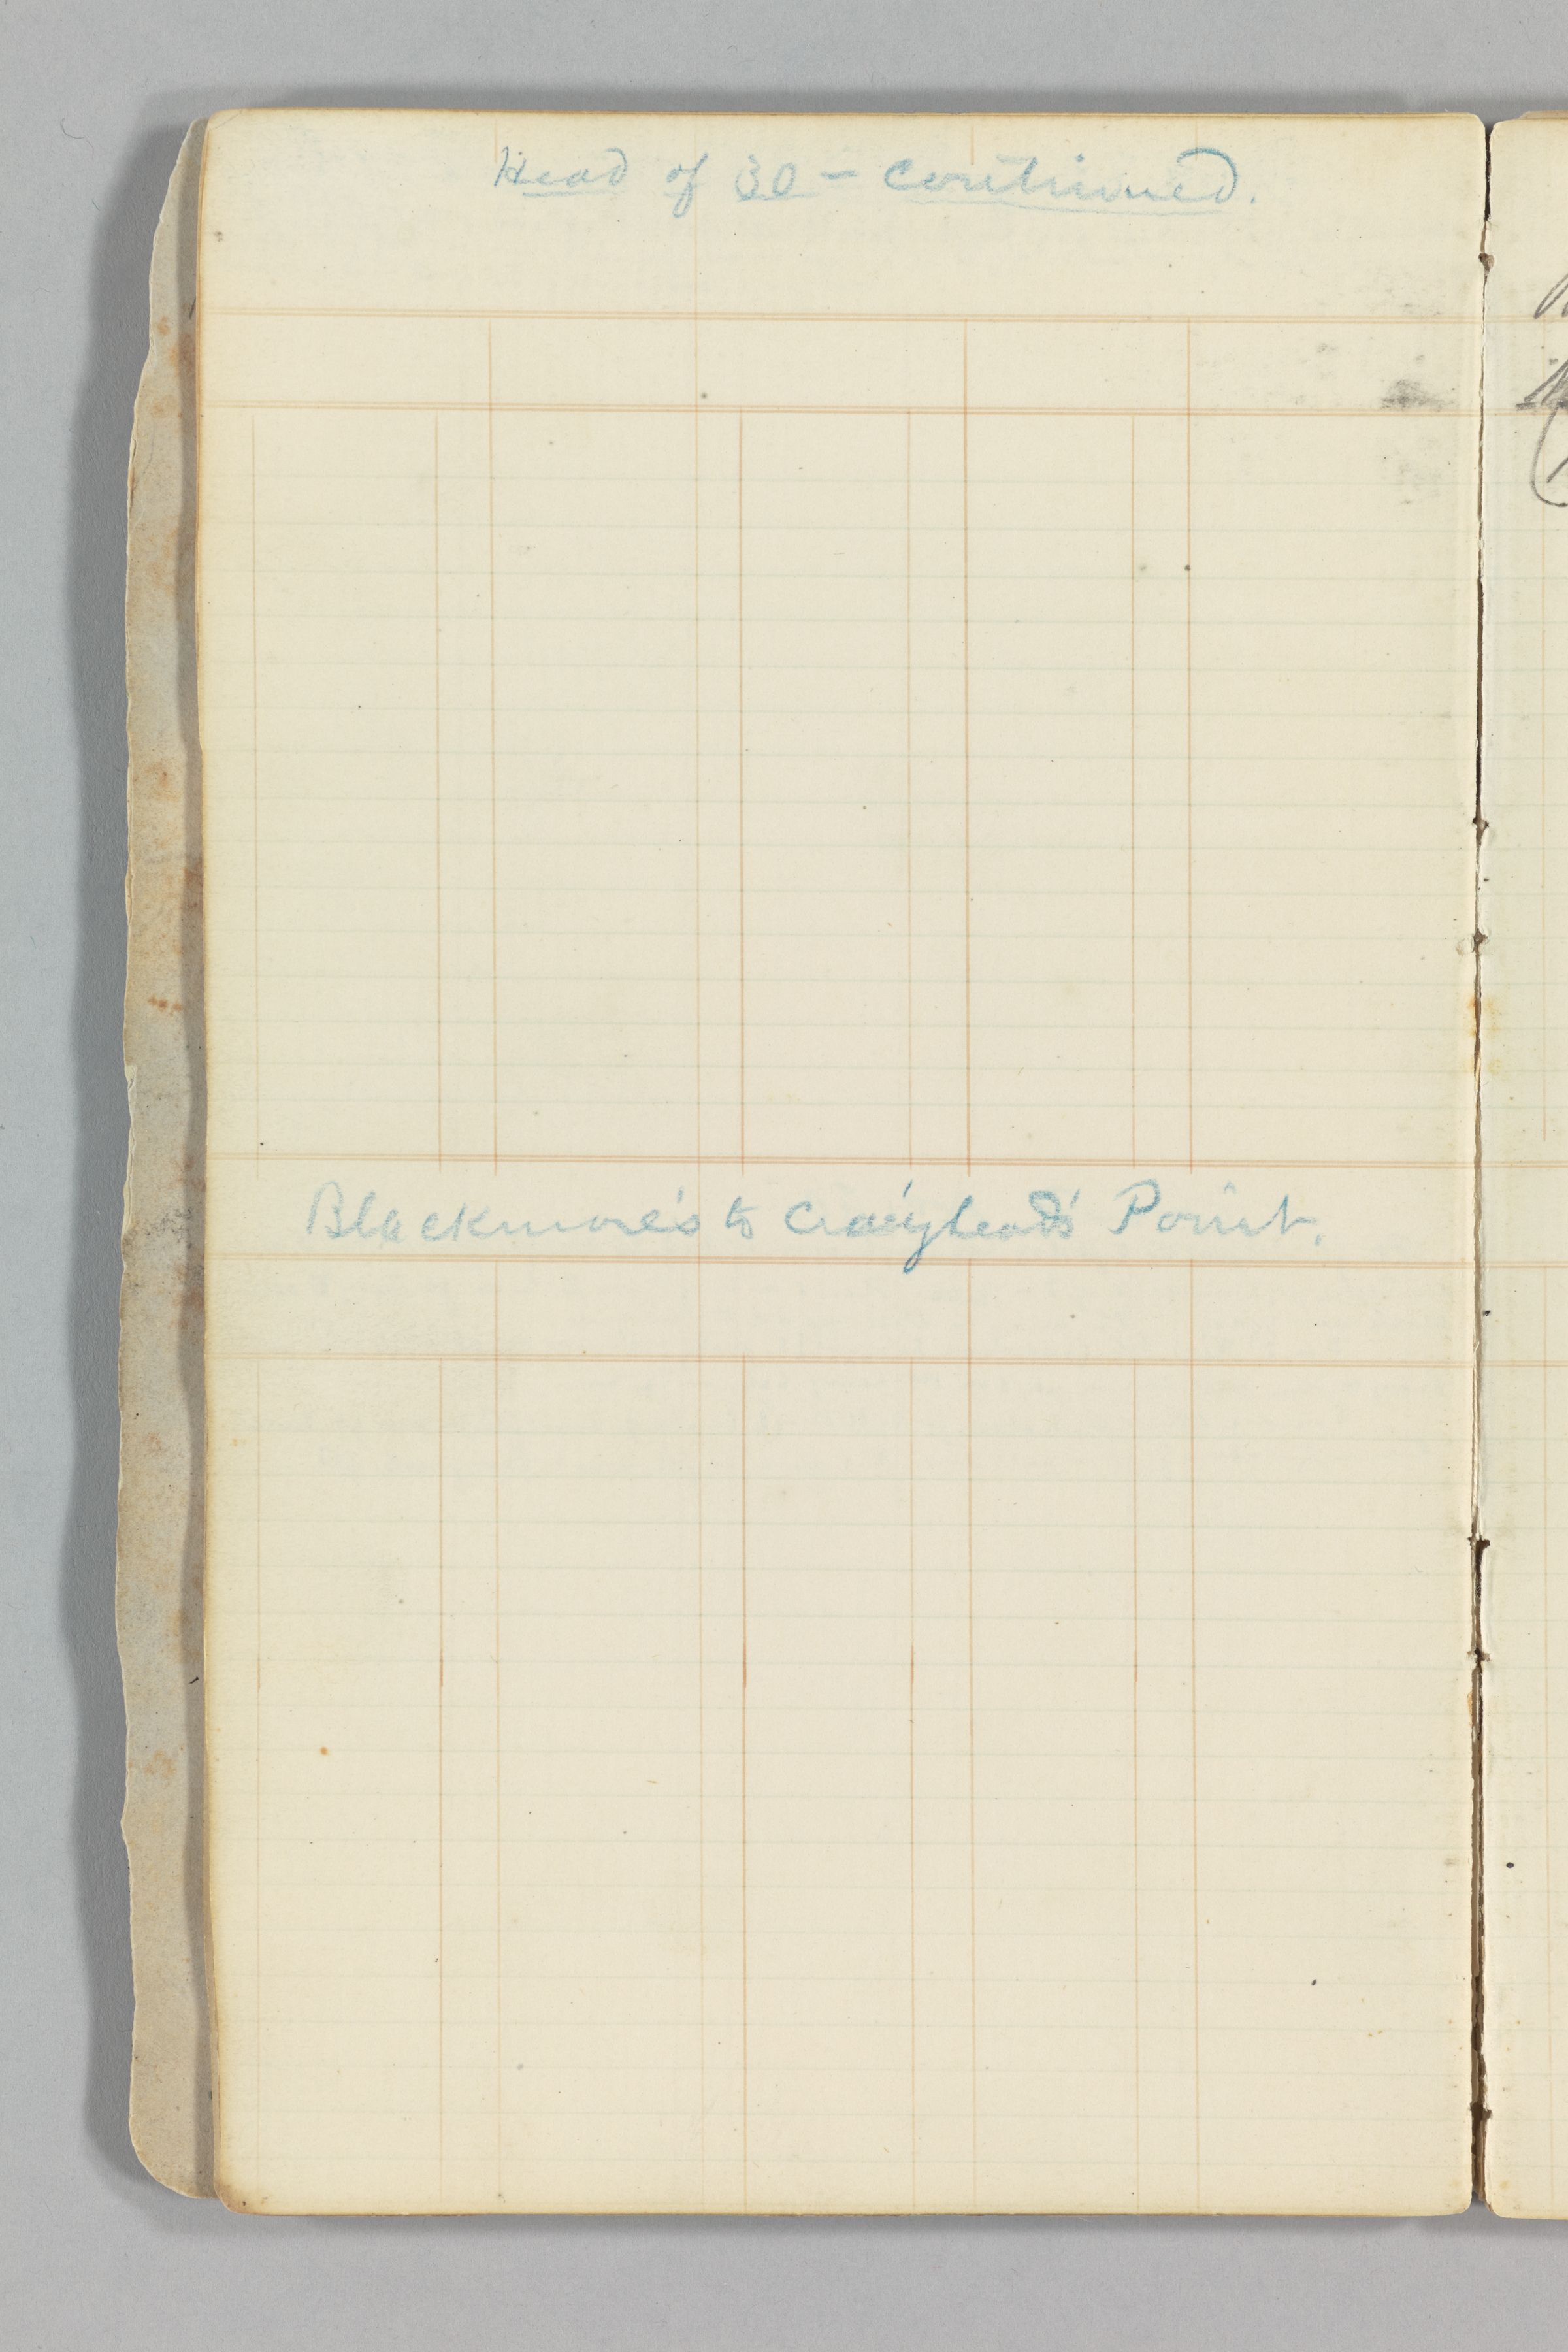 Head of 30 - continued.
Blackmore's to Craighead's Point.